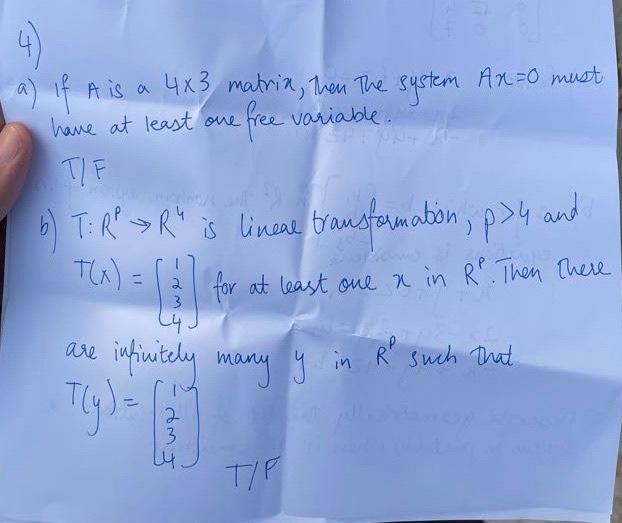 4)
a) If A is a 4x3 matrix, then the system Ax=0 must
have at least one free variable.
T/F
b) T: R^p → R^4 is linear transformation, p>4 and
T(x) = [1 2 3 4] for at least one x in R^p. Then there
are infinitely many y in R^p such that
T(y) = [1 2 3 4]
T/F